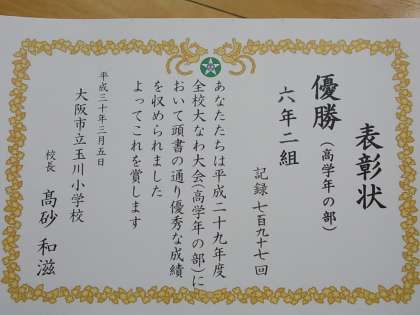 表彰状
優勝(高学年の部)
六年二組
記録 七百九十七回
あなたたちは平成二十九年度
全校大なわ大会(高学年の部)に
おいて頭書の通り優秀な成績
を収められました
よってこれを賞します
平成三十年三月五日
大阪市立玉川小学校
校長 髙砂和滋